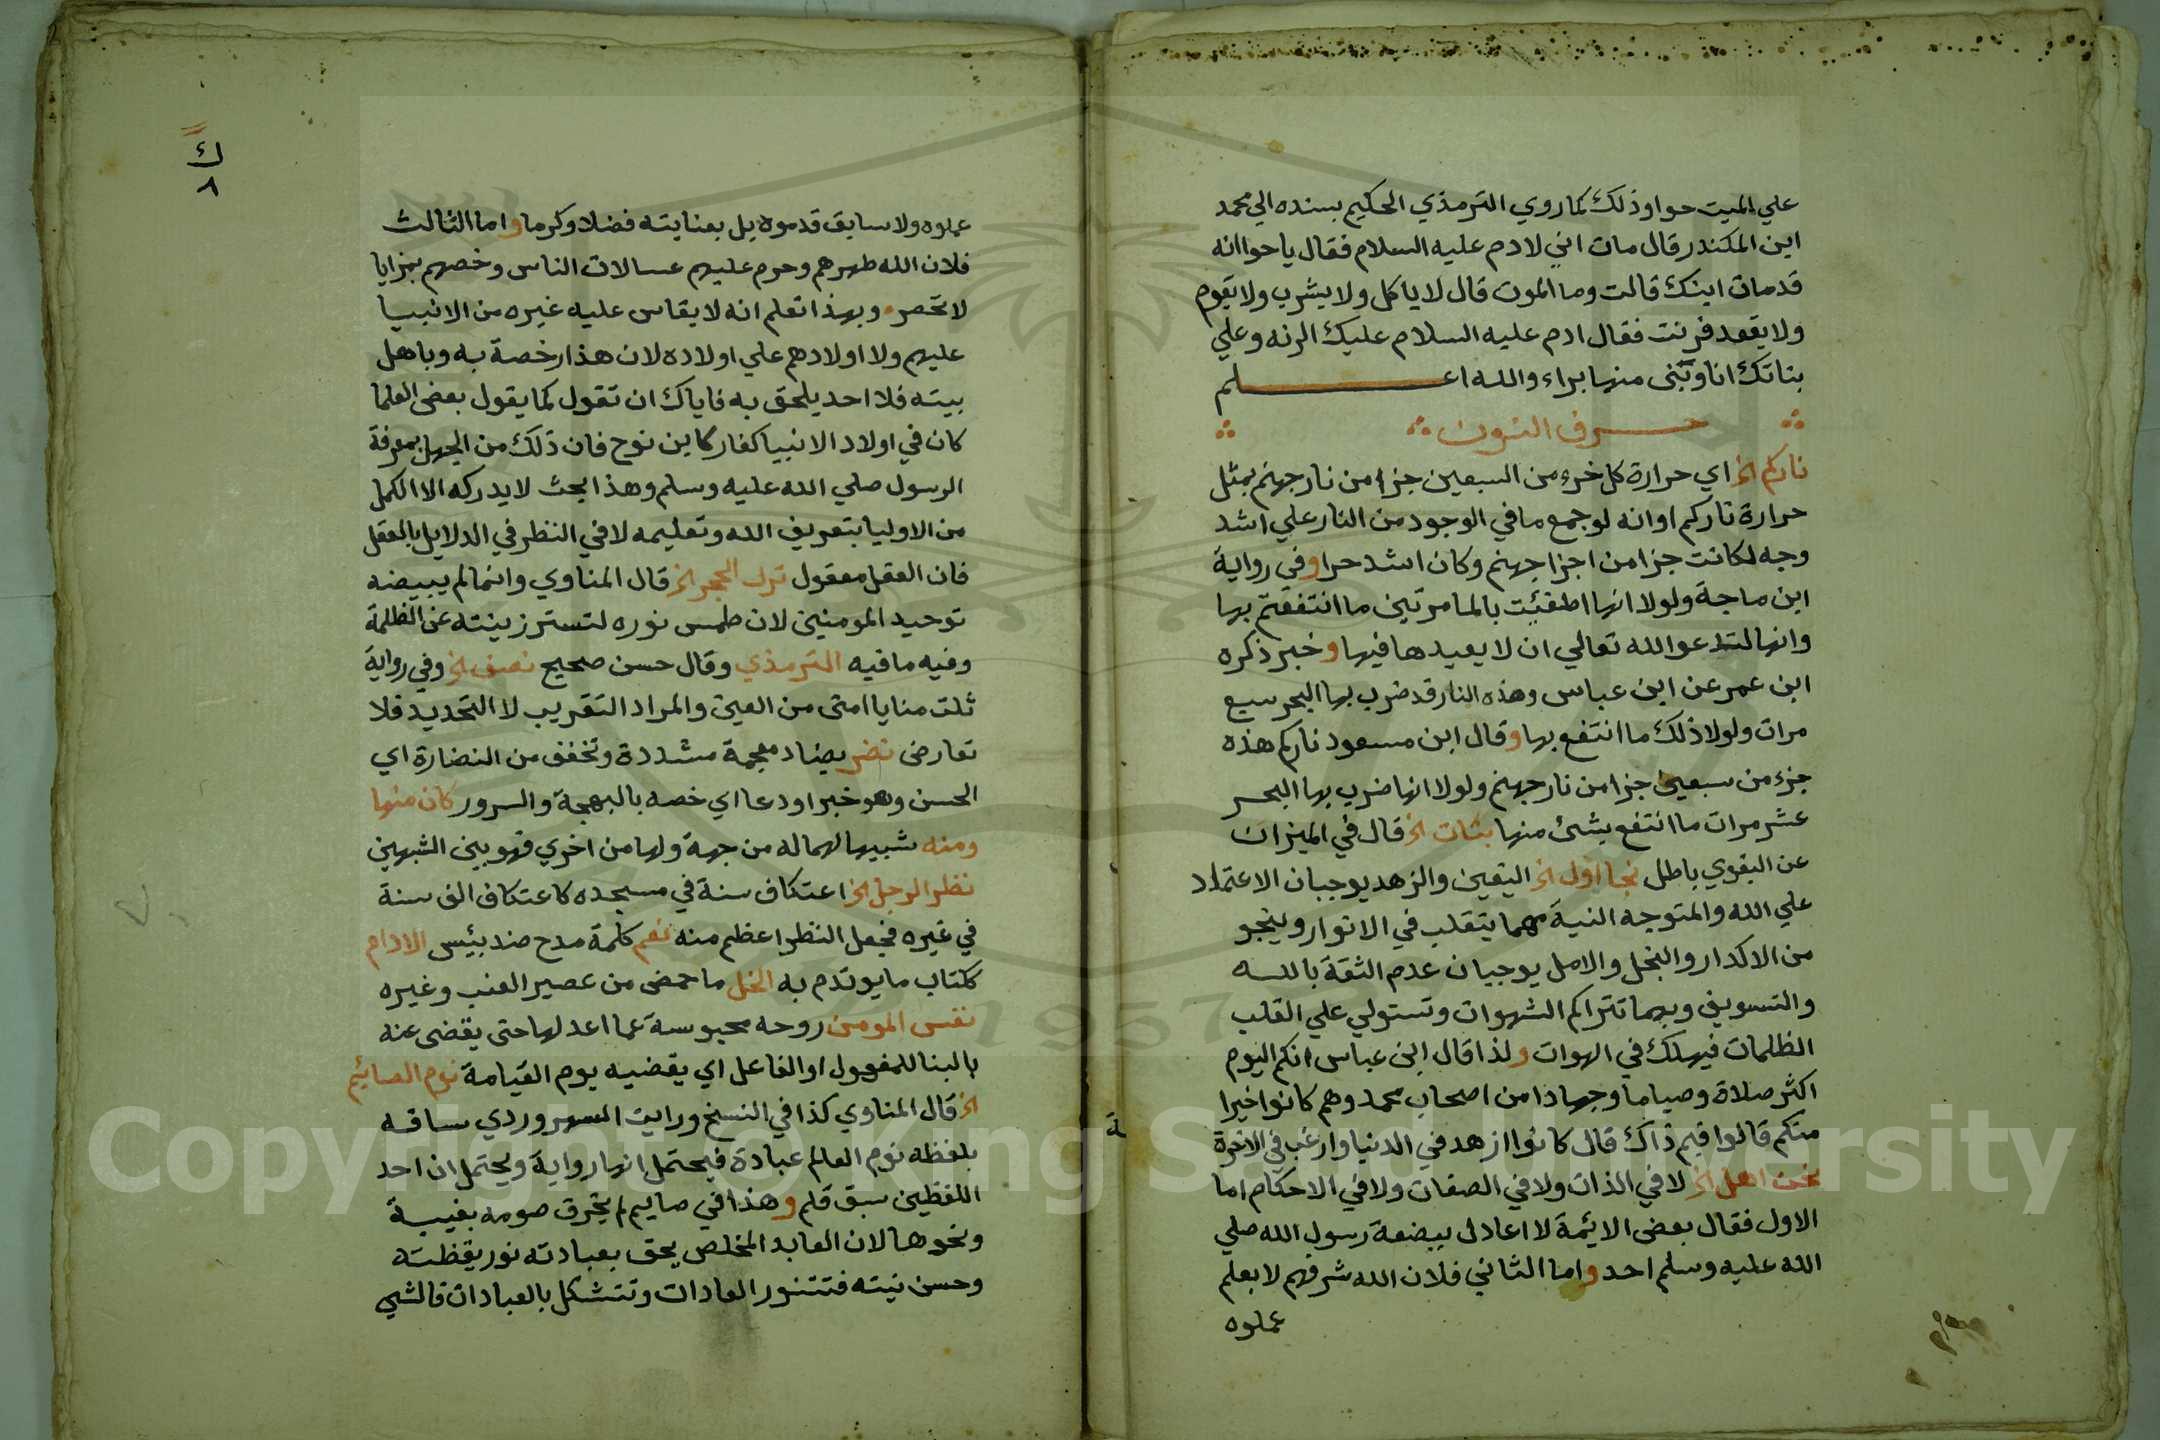 علي الميت حوا وذلك كما روي الترمذي الحكيم بسنده الي محمد
ابن المكندر قال مات ابني لادم عليه السلام فقال يا حوا انه
قدمات ابنك قالت وما الموت قال لا ياكل ولا يشرب ولا يقوم
ولا يقعد فرنت فقال ادم عليه السلام عليك الرنه وعلي
بناتك انا وبني منها براء والله اعلم
حرف النون
ناركم الخ اي حرارة كل جزء من السبعين جزا من نار جهنم بمثل
حرارة ناركم او انه لو جمع ما في الوجود من النار علي اشد
وجه لكانت جزا من اجزا جهنم وكان اشد حرا وفي رواية
ابن ماجة ولولا انها اطفئت بالما مرتين ما انتفعتم بها
وانها لتدعو الله تعالي ان لا يعيدها فيها وخبر ذكره
ابن عمر عن ابن عباس وهذه النار قد ضرب بها البحر سبع
مرات ولولا ذلك ما انتفع بها وقال ابن مسعود ناركم هذه
جزء من سبعين جزا من نار جهنم ولولا انها ضرب بها البحر
عشر مرات ما انتفع بشئ منها بثات الخ قال في الميزان
عن البغوي باطل نجا اول الخ اليقين والزهد يوجبان الاعتماد
علي الله والمتوجه النية مهما يتقلب في الانوار وينجو
من الاكدار والبخل والامل يوجبان عدم الثقة بالله
والتسويف وبهما تتراكم الشهوات وتستولي علي القلب
الظلمات فيهلك في الهوات ولذا قال ابن عباس انكم اليوم
اكثر صلاة وصياما وجهادا من اصحاب محمد وهم كانوا خيرا
منكم قالوا فيم ذاك قال كانوا ازهد في الدنيا وارغب في الاخرة
نحن اهل الخ لا في الذات ولا في الصفات ولا في الاحكام اما
الاول فقال بعض الايمة لا اعادل ببضعة رسول الله صلي
الله عليه وسلم احد واما الثاني فلان الله شرفهم لا بعلم
عملوه
ك
٨
عملوه ولا سابق قدموه بل بعنايته فضلا وكرما واما الثالث
فلان الله طهرهم وحرم عليهم غسالات الناس وخصهم بمزايا
لا تحصر وبهذا تعلم انه لا يقاس عليه غيره من الانبيا
عليهم ولا اولادهم علي اولاده لان هذا رخصة به وباهل
بيته فلا احد يلحق به فاياك ان تقول كما يقول بعض العلما
كان في اولاد الانبيا كفار كابن نوح فان ذلك من الجهل بمعرفة
الرسول صلي الله عليه وسلم وهذا بحث لا يدركه الا الكمل
من الاوليا بتعريف الله وتعليمه لا في النظر في الدلايل بالعقل
فان العقل معقول نزل الحجر الخ قال المناوي وانما لم يبيضه
توحيد المومنين لان طمس نوره لتستر زينته عن الظلمة
وفيه ما فيه الترمذي وقال حسن صحيح نصف الخ وفي رواية
ثلث منايا امتي من العين والمراد التقريب لا التحديد فلا
تعارض نضر بضاد معجمة مشددة وتخفف من النضارة اي
الحسن وهو خبر او دعا اي خصه بالبهجة والسرور كان منها
ومنه شبيها لهما له من جهة ولها من اخري فهو بين الشبهين
نظر الرجل الخ اعتكاف سنة في مسجده كاعتكاف الف سنة
في غيره فجعل النظر اعظم منه نعم كلمة مدح ضد بئيس الادام
ككتاب ما يوتدم به الخل ما حمض من عصير العنب وغيره
نفس المومن روحه محبوسة عما اعد لها حتي يقضي عنه
بالبنا للمفعول او الفاعل اي يقضيه يوم القيامة نوم الصائيم
الخ قال المناوي كذا في النسخ ورايت السهروردي ساقه
بلفظه نوم العالم عبادة فيحتمل انها رواية ويحتمل ان احد
اللفظين سبق قلم وهذا في صايم لم يخرق صومه بغيبة
ونحوها لان العابد المخلص يحق بعبادته نور يقظته
وحسن نيته فتتنور العادات وتتشكل بالعبادات فالشي
1957
Copyright © King Saud University